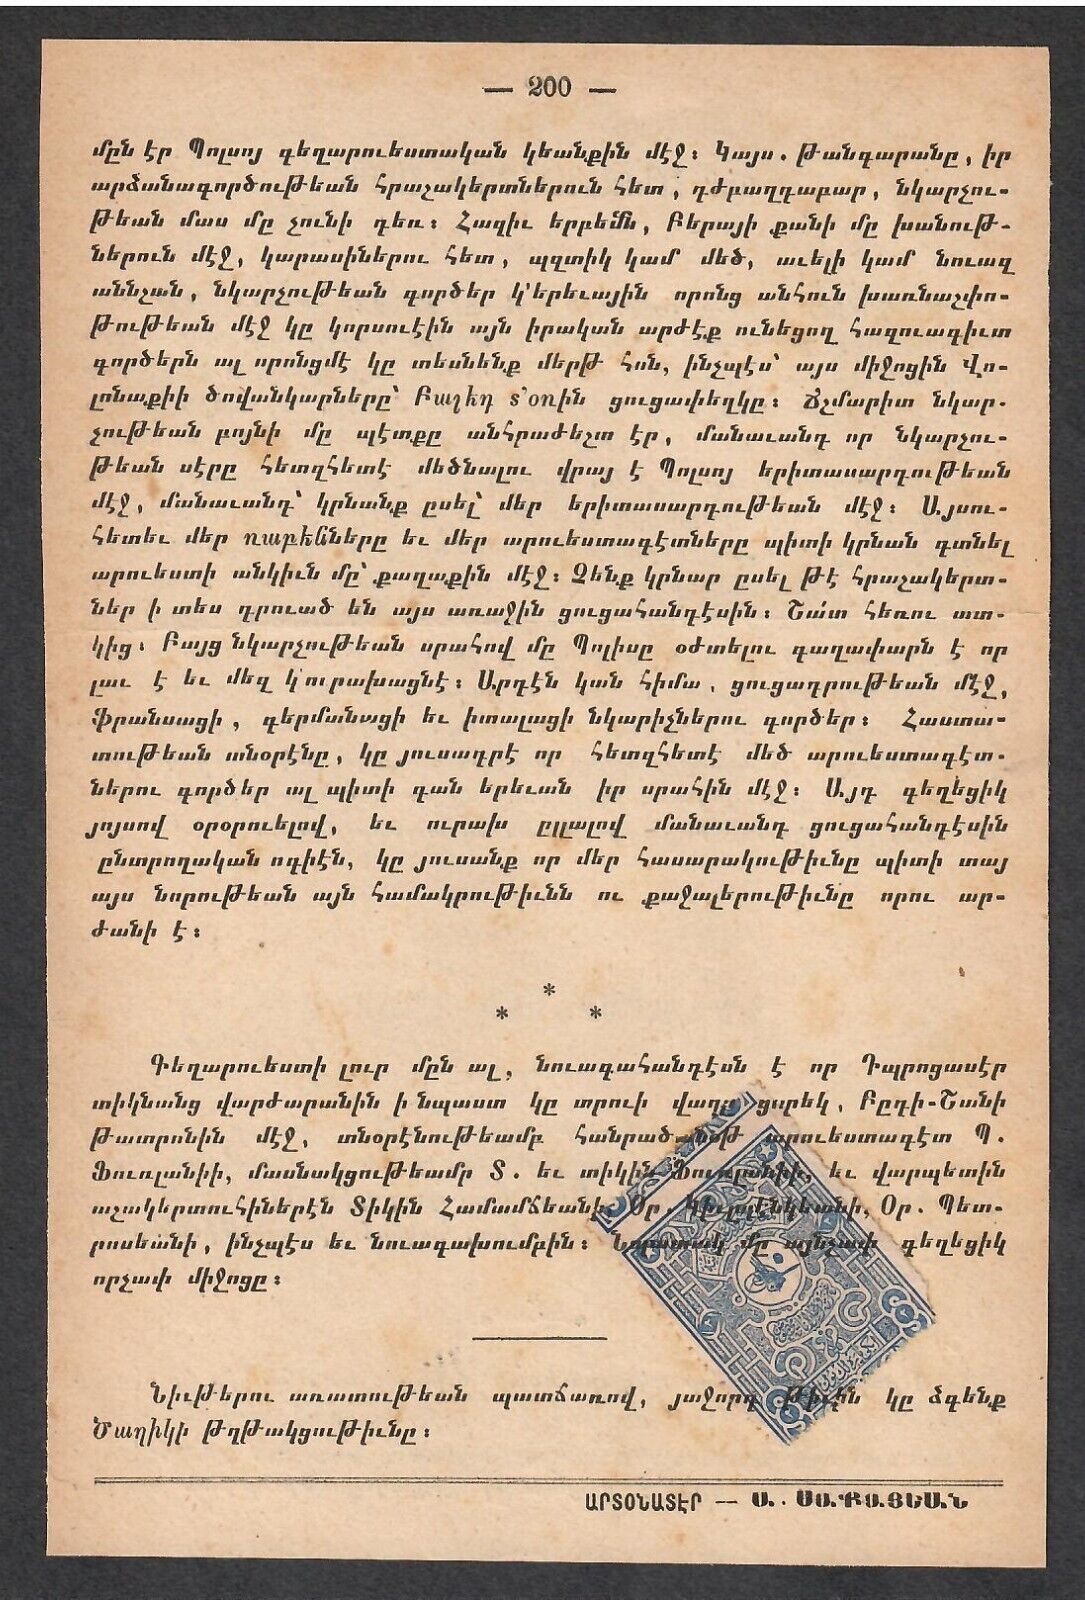 — 200 —
մըն էր Պոլսոյ գեղարուեստական կեանքին մէջ։ Կայս. թանգարանը, իր
արձանագործութեան հրաշակերտներուն հետ, դժբաղդաբար, նկարչու-
թեան մաս մը չունի դեռ։ Հազիւ երբեմն, Բերայի քանի մը խանութ-
ներուն մէջ, կարասիներու հետ, պզտիկ կամ մեծ, աւելի կամ նուազ
աննշան, նկարչութեան գործեր կ'երեւային որոնց անհուն խառնաշփո-
թութեան մէջ կը կորսուէին այն իրական արժէք ունեցող հազուագիւտ
գործերն ալ որոնցմէ կը տեսնենք մերթ հոն, ինչպէս՝ այս միջոցին Վո-
լոնաքիի ծովանկարները՝ Բաշեղ տ՚օռին ցուցափեղկը։ Ճշմարիտ նկար-
չութեան բոյնի մը պէտքը անհրաժեշտ էր, մանաւանդ որ նկարչու-
թեան սէրը հետզհետէ մեծնալու վրայ է Պոլսոյ երիտասարդութեան
մէջ, մանաւանդ՝ կրնանք ըսել՝ մեր երիտասարդութեան մէջ։ Այսու-
հետեւ մեր ռաբեններն եւ մեր արուեստագէտները պիտի կրնան գտնել
արուեստի անկիւն մը՝ քաղաքին մէջ։ Չենք կրնար ըսել թէ հրաշակերտ-
ներ ի տես դրուած են այս առաջին ցուցահանդէսին։ Շատ հեռու ատ-
կից։ Բայց նկարչութեան սրահով մը Պոլիսը օժտելու գաղափարն է որ
լաւ է եւ մեզ կ'ուրախացնէ։ Արդէն կան հիմա, ցուցադրութեան մէջ,
ֆրանսացի, գերմանացի եւ իտալացի նկարիչներու գործեր։ Հաստա-
տութեան տնօրէնը, կը յուսադրէ որ հետզհետէ մեծ արուեստագէտ-
ներու գործեր ալ պիտի գան երեւան իր սրահին մէջ։ Այդ գեղեցիկ
յոյսով օրօրուելով, եւ ուրախ ըլլալով մանաւանդ ցուցահանդէսին
ընտրողական ոգիէն, կը յուսանք որ մեր հասարակութիւնը պիտի տայ
այս նորութեան այն համակրութիւնն ու քաջալերութիւնը որու ար-
ժանի է։
*
* *
Գեղարուեստի լուր մըն ալ, նուագահանդէսն է որ Դպրոցասէր
տիկնանց վարժարանին ի նպաստ կը տրուի վաղը ցորեկ, Բըդի-Շանի
թատրոնին մէջ, տնօրէնութեամբ հանրածանօթ արուեստագէտ Պ.
Ֆուռլանիի, մասնակցութեամբ Տ. եւ տիկին Ֆուռլանիի, եւ վարպետին
աշակերտուհիներէն Տիկին Համամճեանի, Օր. Կիւլպէնկեանի, Օր. Պետ-
րոսեանի, ինչպէս եւ նուագախումբին։ Նպատակ մը այնչափ գեղեցիկ
որչափ միջոցը։
Նիւթերու առատութեան պատճառով, յաջորդ թիւին կը ձգենք
Ծաղիկի թղթակցութիւնը։
ԱՐՏՕՆԱՏԷՐ — Ա. ՍԱՔԱՅԵԱՆ